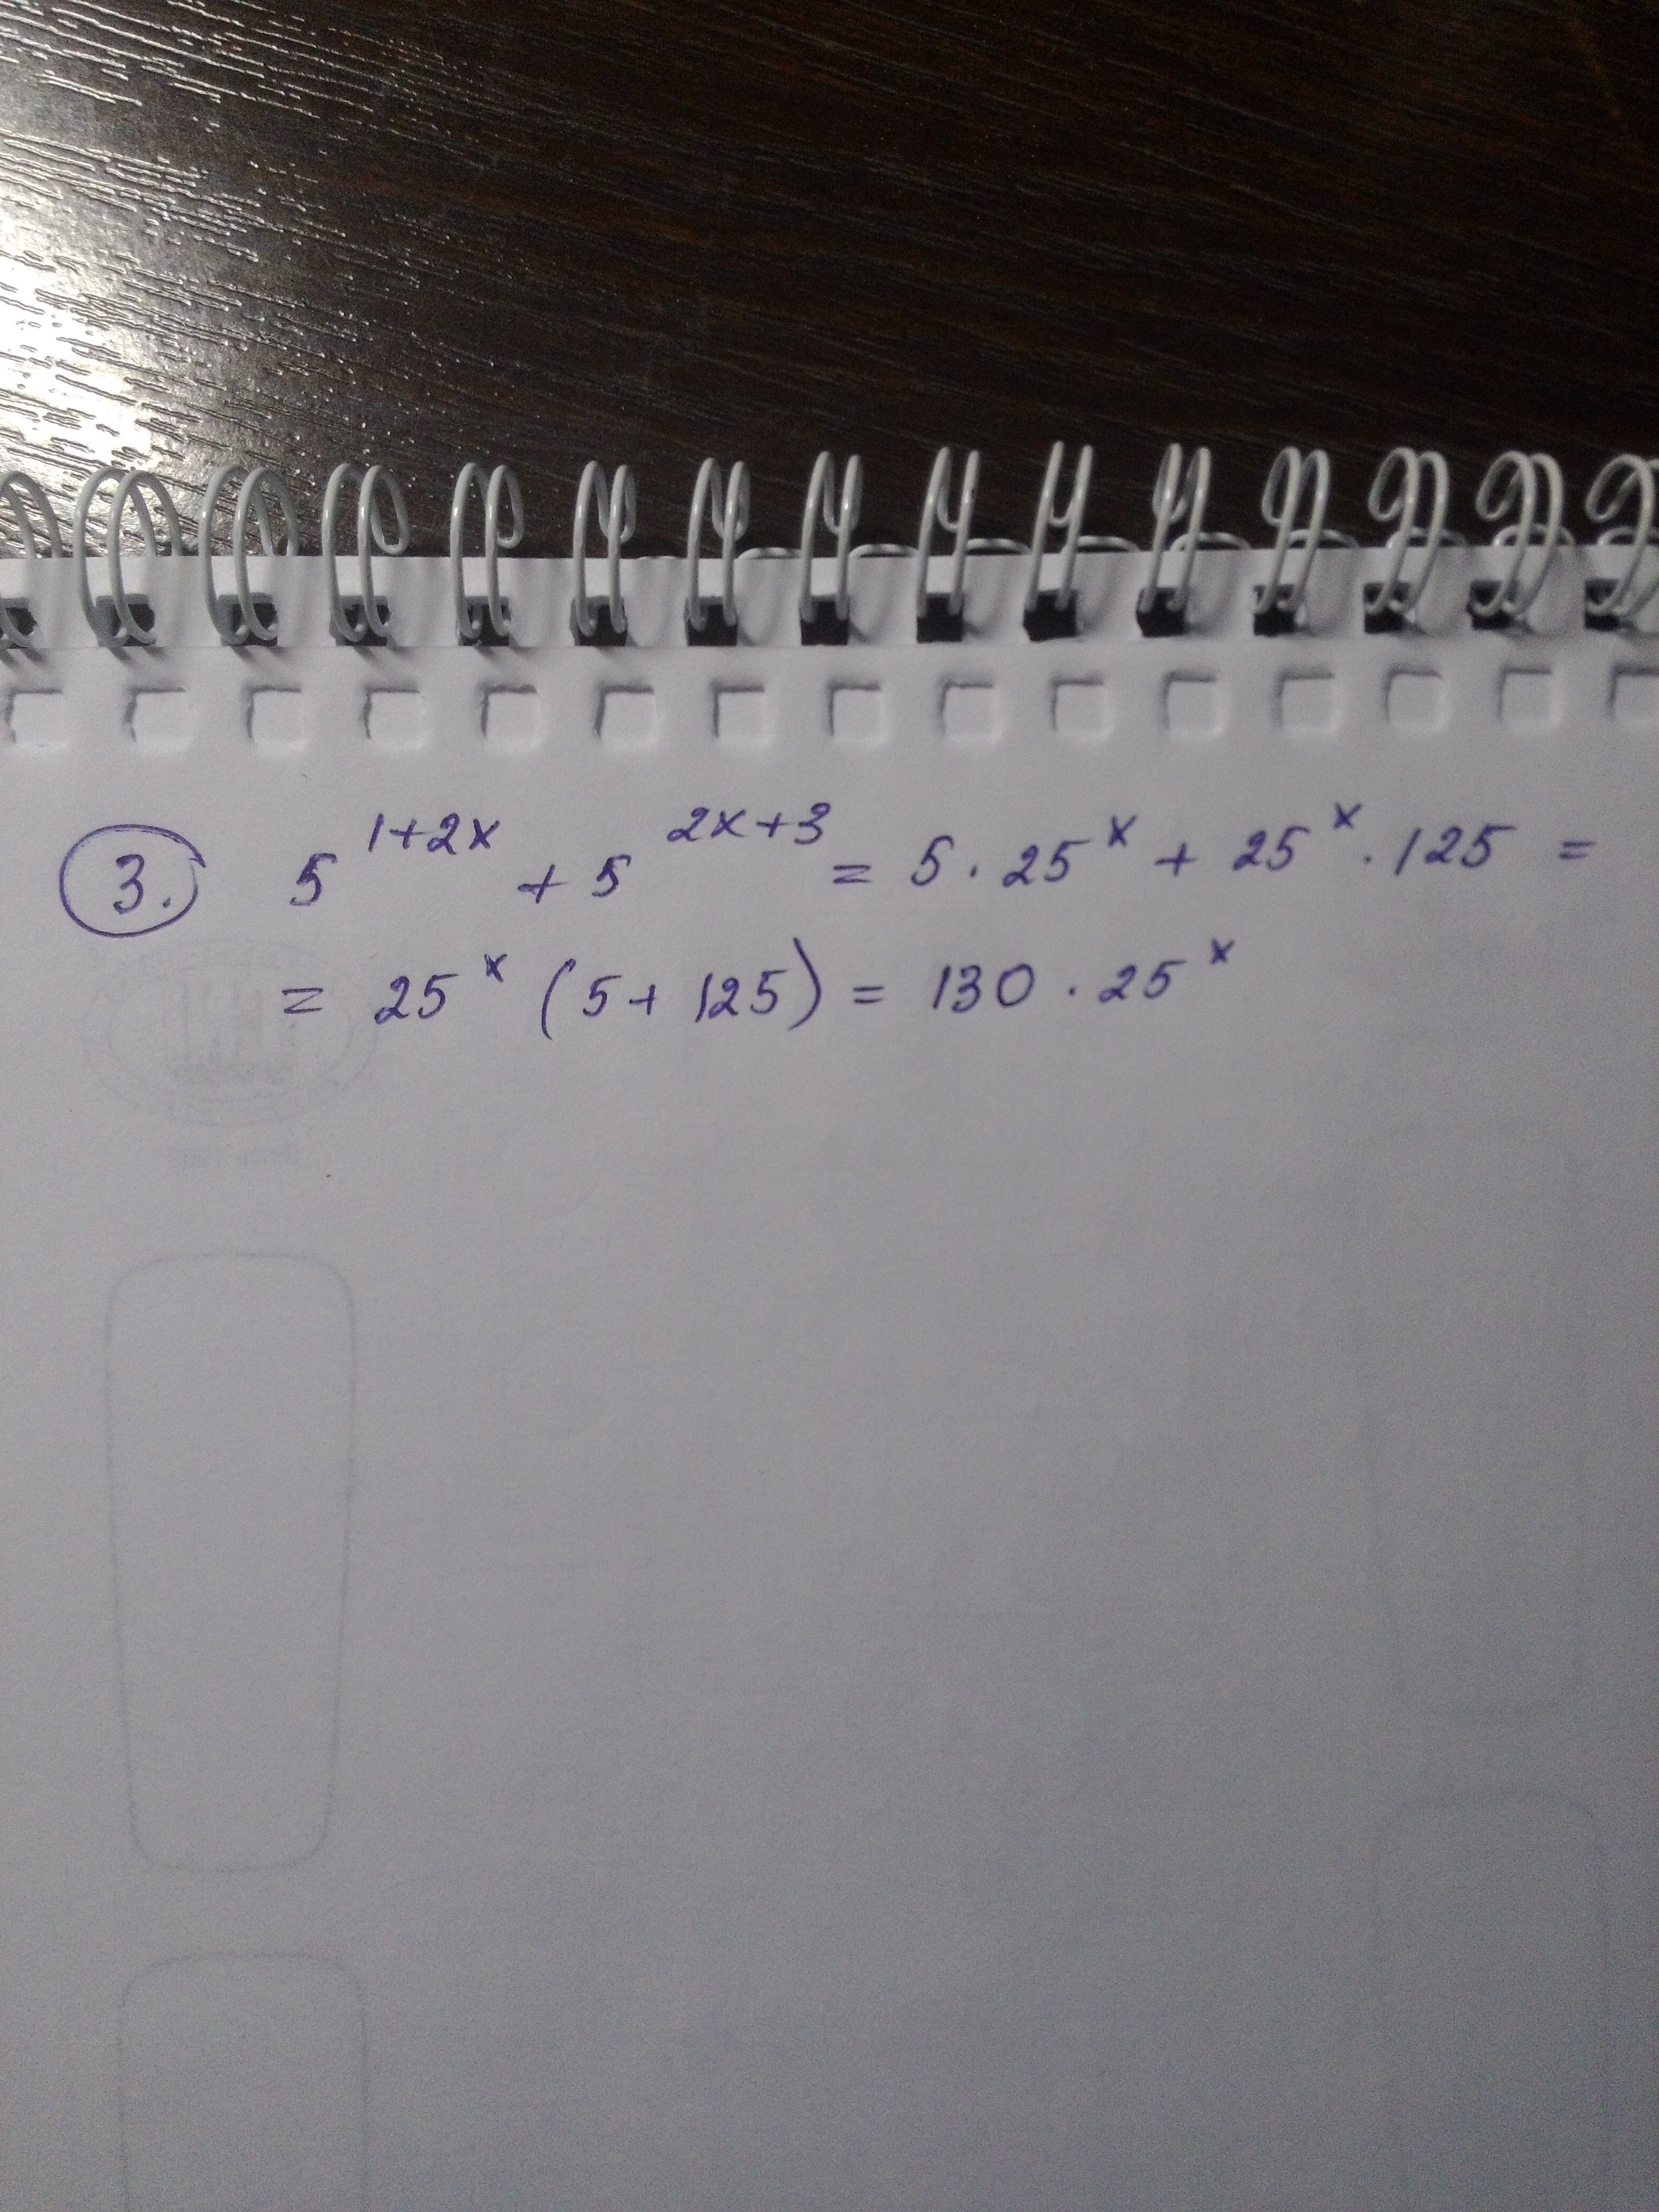 3. 5^{1+2x} + 5^{2x+3} = 5 · 25^x + 25^x · 125 =
= 25^x (5 + 125) = 130 · 25^x